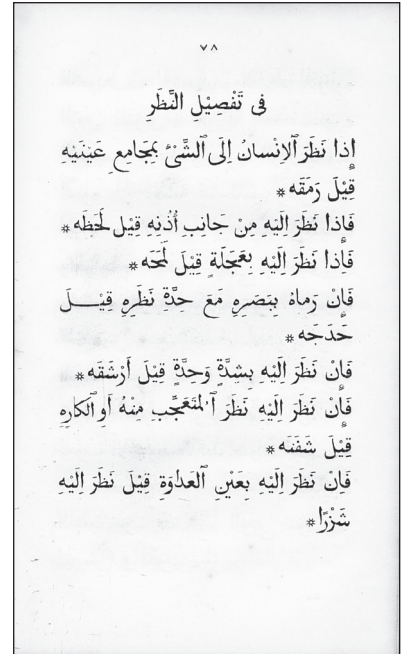 ٧٨
فى تَفْصِيْلِ النَّظَرِ
إِذا نَظَرَ ٱلاِنْسانُ اِلَى ٱلشَّىْءِ بِمَجامِعِ عَيْنَيْهِ
قِيْلَ رَمَقَه *
فَاِذا نَظَرَ اِلَيْهِ مِنْ جانِبِ أُذْنِهِ قِيْلَ لَحَظَه *
فَاِذا نَظَرَ اِلَيْهِ بِعَجَلَةٍ قِيْلَ لَمَحَه *
فَاِنْ رَماهُ بِبَصَرِهِ مَعَ حِدَّةِ نَظَرِهِ قِيْـــلَ
حَدَجَه *
فَاِنْ نَظَرَ اِلَيْهِ بِشِدَّةٍ وَحِدَّةٍ قِيْلَ أَرْشَقَه *
فَاِنْ نَظَرَ اِلَيْهِ نَظَرَ ٱلْمُتَعَجِّبِ مِنْهُ أَوِ ٱلكارِهِ
قِيْلَ شَفَنَه *
فَاِنْ نَظَرَ اِلَيْهِ بِعَيْنِ ٱلعَداوَةِ قِيْلَ نَظَرَ اِلَيْهِ
شَزْرًا *